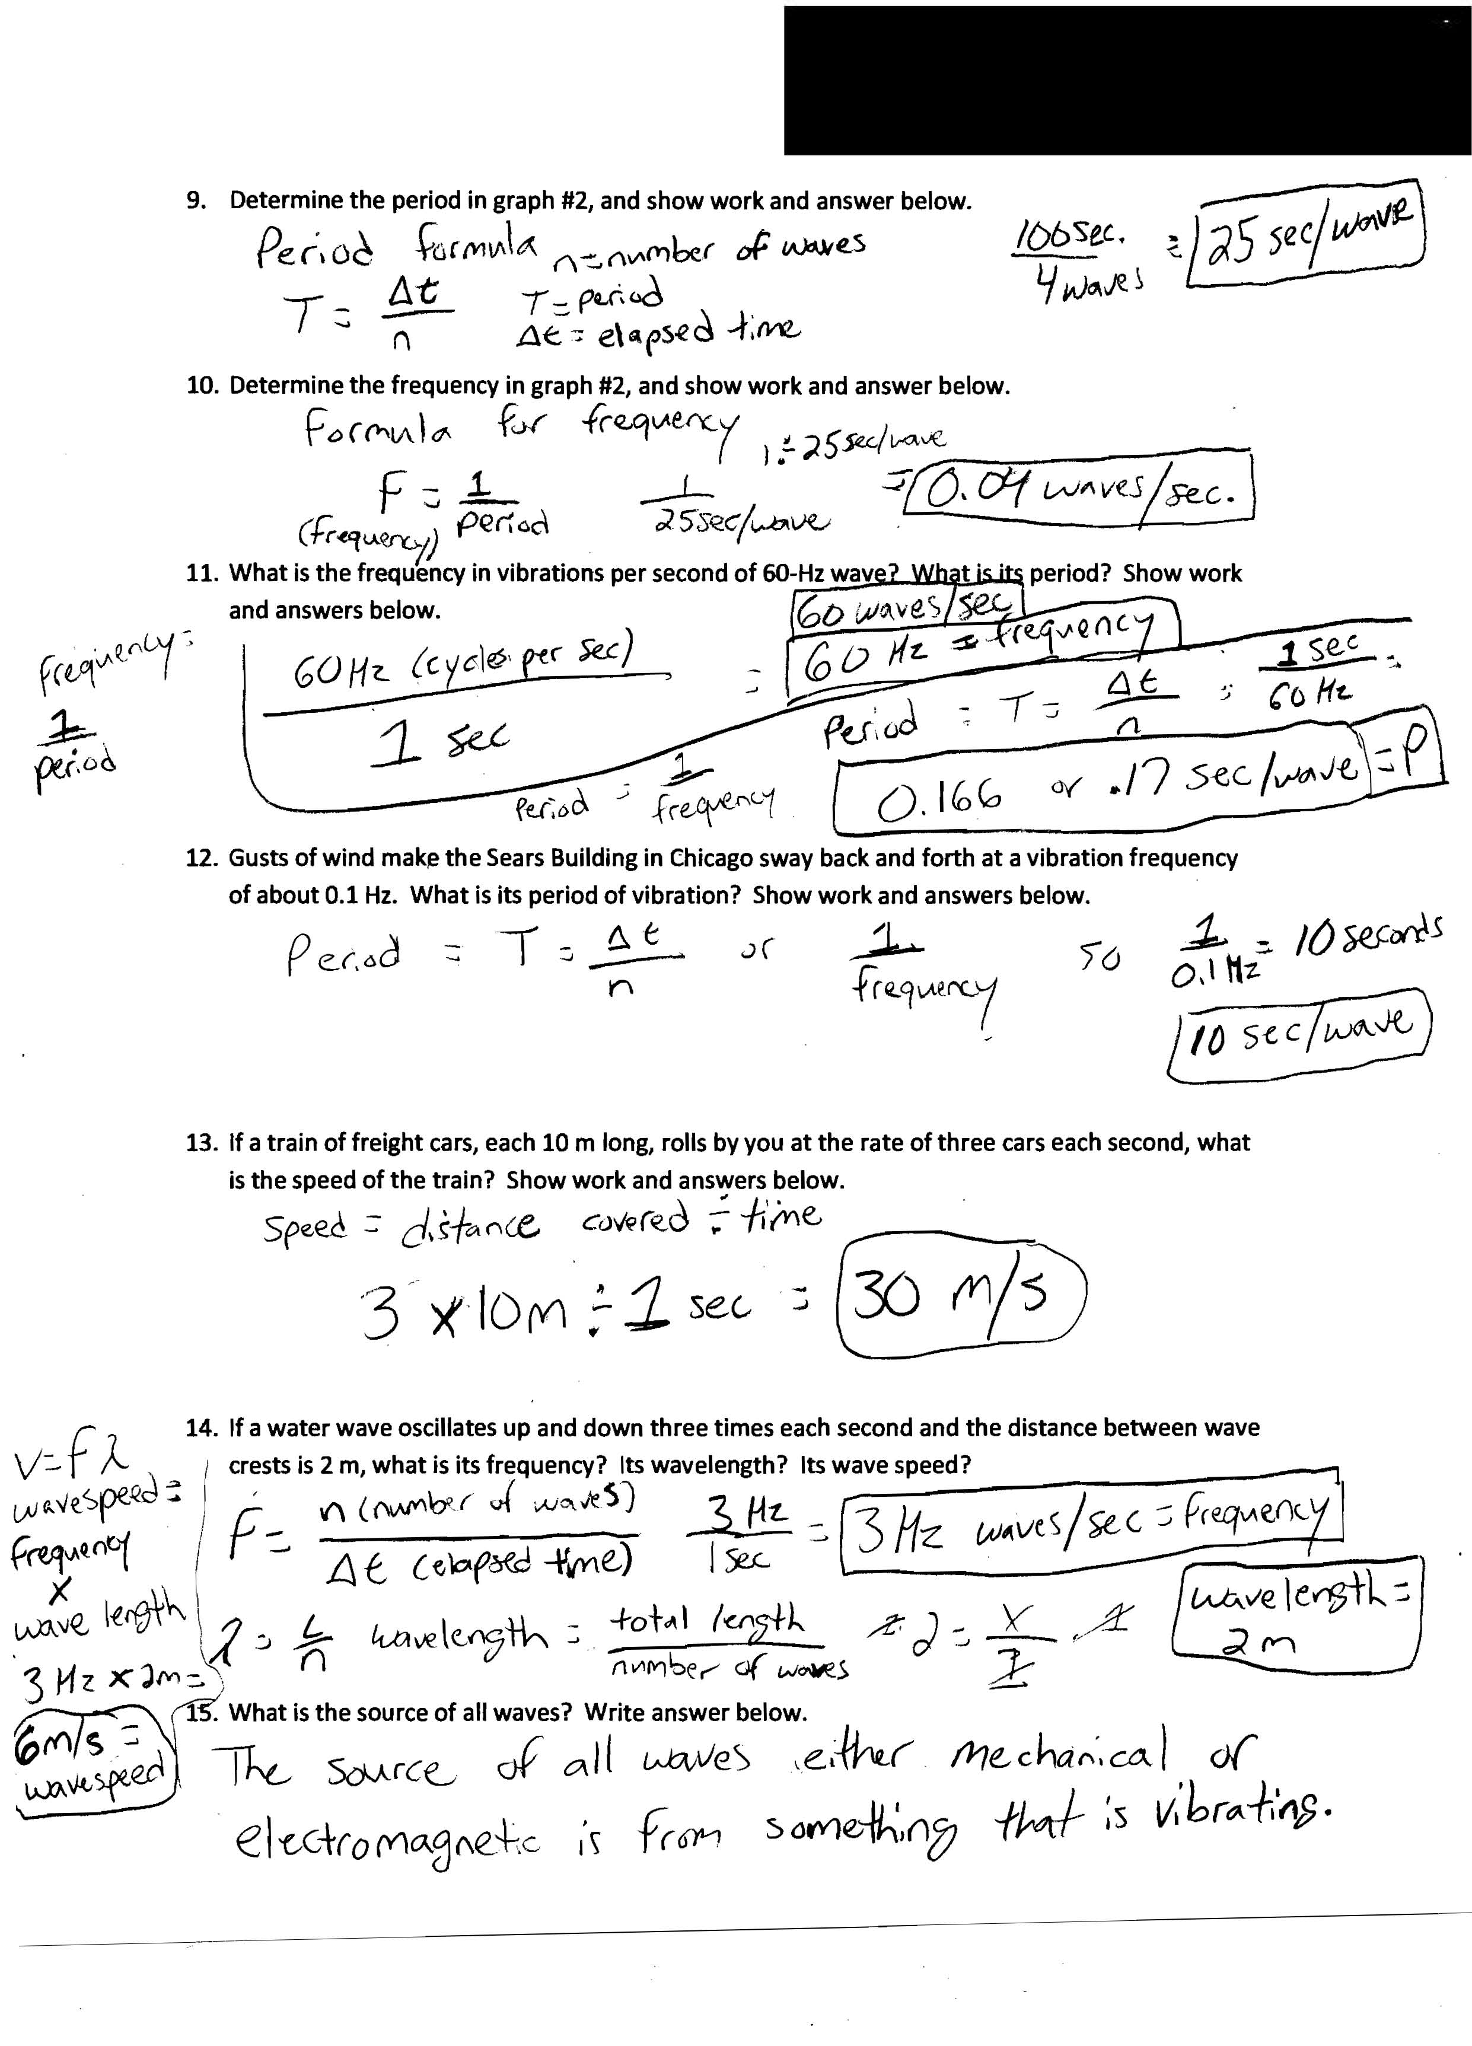 9. Determine the period in graph #2, and show work and answer below.
Period formula n=number of waves
T = Δt/n
T = period
Δt = elapsed time
100 sec. / 4 waves = 25 sec/wave
10. Determine the frequency in graph #2, and show work and answer below.
Formula for frequency
F = 1/period
(frequency)
1 ÷ 25 sec/wave
1/25 sec/wave = 0.04 waves/sec.
11. What is the frequency in vibrations per second of 60-Hz wave? What is its period? Show work
and answers below.
frequency = 1/period
60 Hz (cycles per sec) / 1 sec = 60 Hz = frequency
60 waves/sec
Period = 1/frequency
Period = T = Δt/n = 1 sec/60 Hz =
0.166 or .17 sec/wave = P
12. Gusts of wind make the Sears Building in Chicago sway back and forth at a vibration frequency
of about 0.1 Hz. What is its period of vibration? Show work and answers below.
Period = T = Δt/n or 1/frequency so 1/0.1 Hz = 10 seconds
10 sec/wave
13. If a train of freight cars, each 10 m long, rolls by you at the rate of three cars each second, what
is the speed of the train? Show work and answers below.
Speed = distance covered ÷ time
3 x 10m ÷ 1 sec = 30 m/s
14. If a water wave oscillates up and down three times each second and the distance between wave
crests is 2 m, what is its frequency? Its wavelength? Its wave speed?
F = n (number of waves) / Δt (elapsed time) 3 Hz / 1 sec = 3 Hz waves/sec = frequency
λ = L/n wavelength = total length / number of waves
wavelength =
2m
v=fλ
wavespeed =
frequency
x
wave length
3 Hz x 2m =
6m/s =
wavespeed
15. What is the source of all waves? Write answer below.
The source of all waves either mechanical or
electromagnetic is from something that is vibrating.